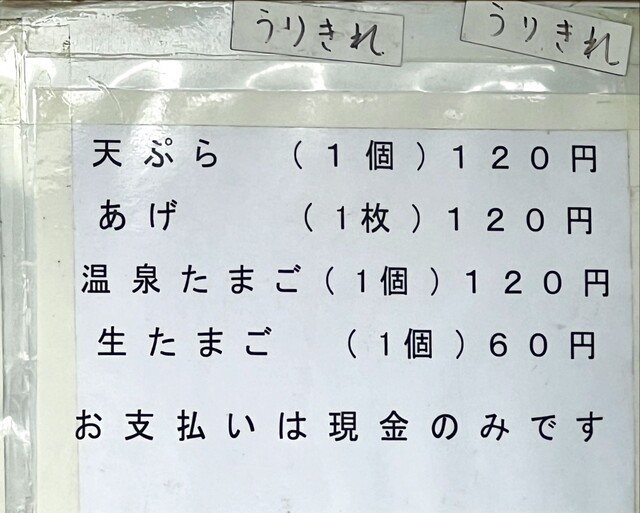 うりきれ うりきれ
天ぷら （１個）１２０円
あげ （１枚）１２０円
温泉たまご（１個）１２０円
生たまご （１個）６０円
お支払いは現金のみです